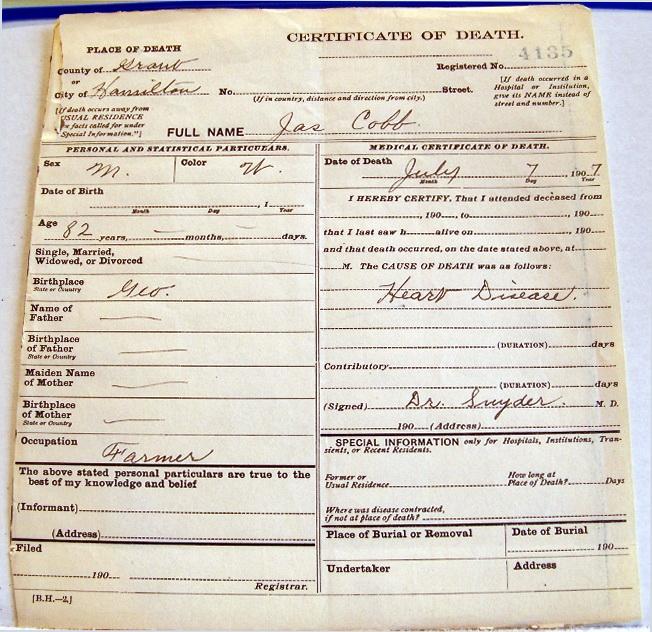 CERTIFICATE OF DEATH.
PLACE OF DEATH
4135
County of Grant
Registered No.
or
City of Hamilton No. Street.
(If in country, distance and direction from city.)
[If death occurred in a Hospital or Institution, give its NAME instead of street and number.]
[If death occurs away from USUAL RESIDENCE facts called for under "Special Information."]
FULL NAME Jas Cobb
PERSONAL AND STATISTICAL PARTICULARS.
Sex M. Color W.
Date of Birth , 1
Month Day Year
Age 82 years, — months, — days.
Single, Married, Widowed, or Divorced —
Birthplace Geo.
State or Country
Name of Father —
Birthplace of Father —
State or Country
Maiden Name of Mother —
Birthplace of Mother —
State or Country
Occupation Farmer
The above stated personal particulars are true to the
best of my knowledge and belief
(Informant)
(Address)
Filed
190
Registrar.
[B.H.—2.]
MEDICAL CERTIFICATE OF DEATH.
Date of Death July 7, 1907
Month Day Year
I HEREBY CERTIFY, That I attended deceased from
, 190 , to , 190
that I last saw h alive on , 190
and that death occurred, on the date stated above, at
M. The CAUSE OF DEATH was as follows:
Heart Disease.
(DURATION) days
Contributory
(DURATION) days
(Signed) Dr. Snyder. M. D.
190 (Address)
SPECIAL INFORMATION only for Hospitals, Institutions, Tran-
sients, or Recent Residents.
Former or Usual Residence How long at Place of Death? Days
Where was disease contracted,
if not at place of death?
Place of Burial or Removal Date of Burial
190
Undertaker Address